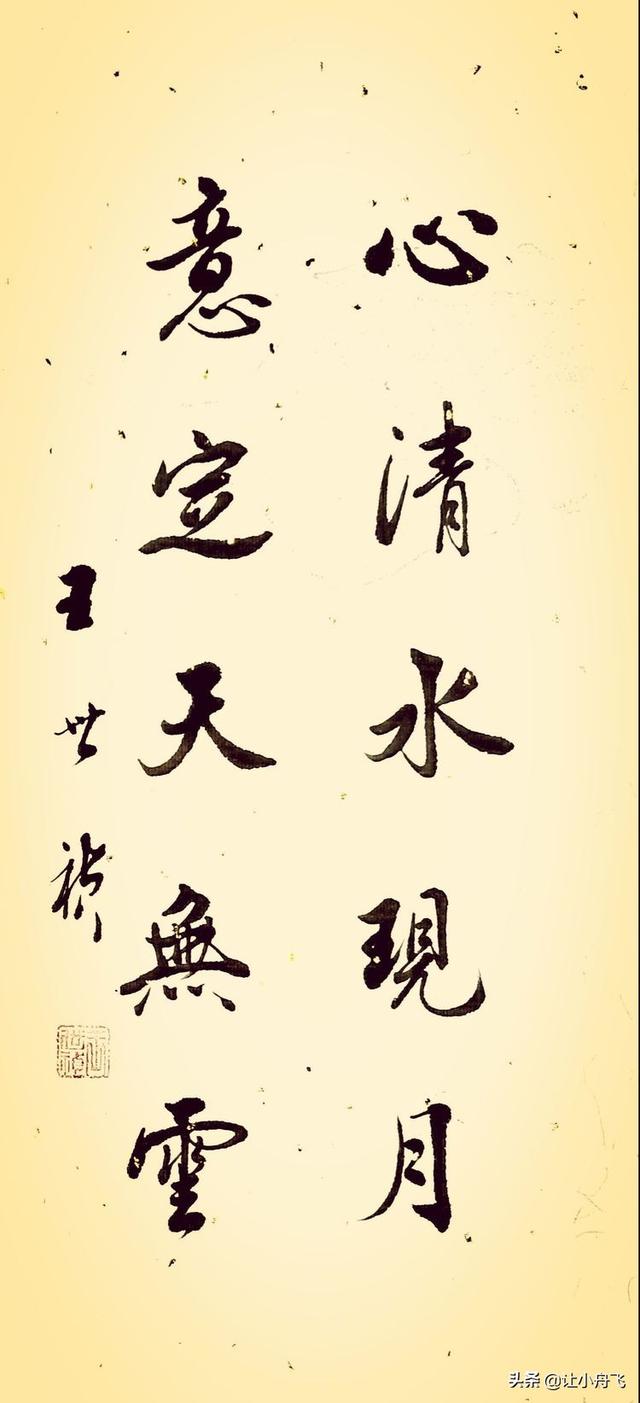 心清水現月
意定天無雲
王世
头条 @让小舟飞